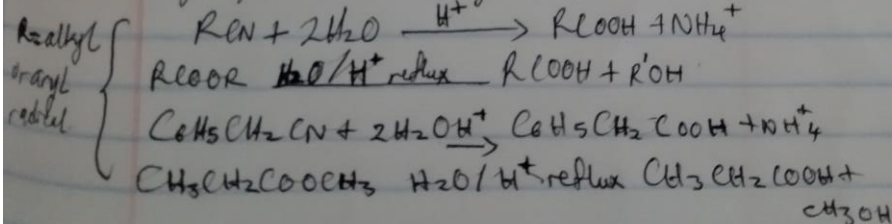 R=alkyl
or aryl
radical
RCN + 2H2O H+ → RCOOH + NH4+
RCOOR H2O/H+ reflux RCOOH + R'OH
C6H5CH2CN + 2H2O H+ → C6H5CH2COOH + NH+4
CH3CH2COOCH3 H2O/H+ reflux CH3CH2COOH +
CH3OH